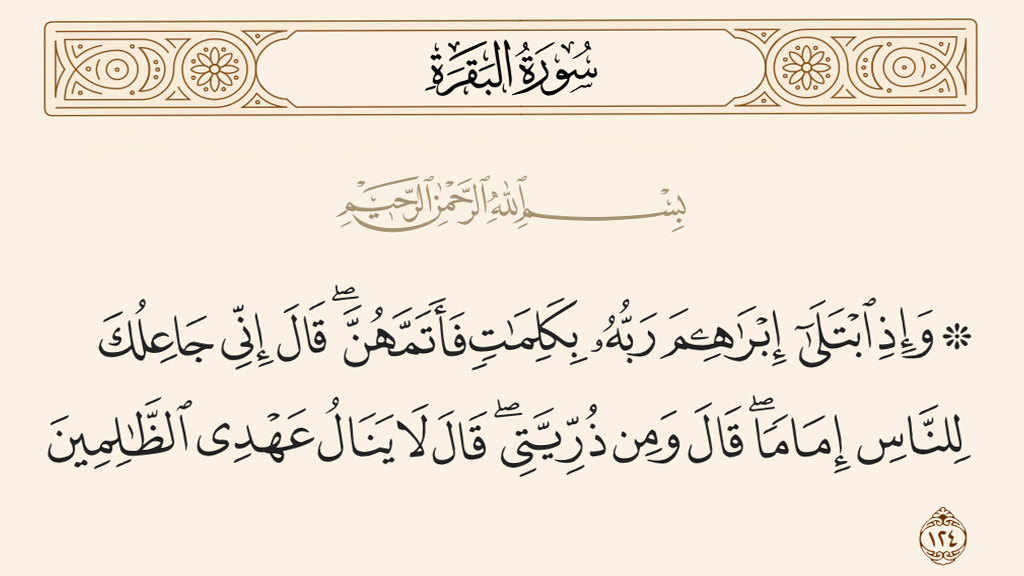 سُورَةُ البَقَرَةِ
بِسْمِ ٱللَّهِ ٱلرَّحْمَٰنِ ٱلرَّحِيمِ
۞ وَإِذِ ٱبْتَلَىٰٓ إِبْرَٰهِـۧمَ رَبُّهُۥ بِكَلِمَٰتٍ فَأَتَمَّهُنَّۖ قَالَ إِنِّى جَاعِلُكَ
لِلنَّاسِ إِمَامًاۖ قَالَ وَمِن ذُرِّيَّتِىۖ قَالَ لَا يَنَالُ عَهْدِى ٱلظَّٰلِمِينَ
١٢٤